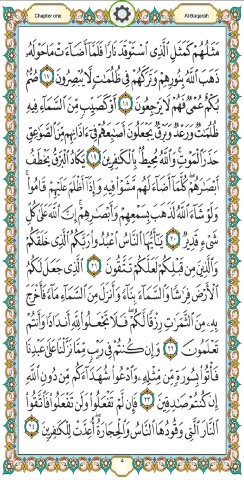 Chapter one
Al-Baqarah
مَثَلُهُمْ كَمَثَلِ الَّذِي اسْتَوْقَدَ نَارًا فَلَمَّا أَضَاءَتْ مَا حَوْلَهُ
ذَهَبَ اللَّهُ بِنُورِهِمْ وَتَرَكَهُمْ فِي ظُلُمَاتٍ لَا يُبْصِرُونَ ١٧ صُمٌّ
بُكْمٌ عُمْيٌ فَهُمْ لَا يَرْجِعُونَ ١٨ أَوْ كَصَيِّبٍ مِنَ السَّمَاءِ فِيهِ
ظُلُمَاتٌ وَرَعْدٌ وَبَرْقٌ يَجْعَلُونَ أَصَابِعَهُمْ فِي آذَانِهِمْ مِنَ الصَّوَاعِقِ
حَذَرَ الْمَوْتِ وَاللَّهُ مُحِيطٌ بِالْكَافِرِينَ ١٩ يَكَادُ الْبَرْقُ يَخْطَفُ
أَبْصَارَهُمْ كُلَّمَا أَضَاءَ لَهُمْ مَشَوْا فِيهِ وَإِذَا أَظْلَمَ عَلَيْهِمْ قَامُوا
وَلَوْ شَاءَ اللَّهُ لَذَهَبَ بِسَمْعِهِمْ وَأَبْصَارِهِمْ إِنَّ اللَّهَ عَلَى كُلِّ
شَيْءٍ قَدِيرٌ ٢٠ يَا أَيُّهَا النَّاسُ اعْبُدُوا رَبَّكُمُ الَّذِي خَلَقَكُمْ
وَالَّذِينَ مِنْ قَبْلِكُمْ لَعَلَّكُمْ تَتَّقُونَ ٢١ الَّذِي جَعَلَ لَكُمُ
الْأَرْضَ فِرَاشًا وَالسَّمَاءَ بِنَاءً وَأَنْزَلَ مِنَ السَّمَاءِ مَاءً فَأَخْرَجَ
بِهِ مِنَ الثَّمَرَاتِ رِزْقًا لَكُمْ فَلَا تَجْعَلُوا لِلَّهِ أَنْدَادًا وَأَنْتُمْ
تَعْلَمُونَ ٢٢ وَإِنْ كُنْتُمْ فِي رَيْبٍ مِمَّا نَزَّلْنَا عَلَى عَبْدِنَا
فَأْتُوا بِسُورَةٍ مِنْ مِثْلِهِ وَادْعُوا شُهَدَاءَكُمْ مِنْ دُونِ اللَّهِ
إِنْ كُنْتُمْ صَادِقِينَ ٢٣ فَإِنْ لَمْ تَفْعَلُوا وَلَنْ تَفْعَلُوا فَاتَّقُوا
النَّارَ الَّتِي وَقُودُهَا النَّاسُ وَالْحِجَارَةُ أُعِدَّتْ لِلْكَافِرِينَ ٢٤
4